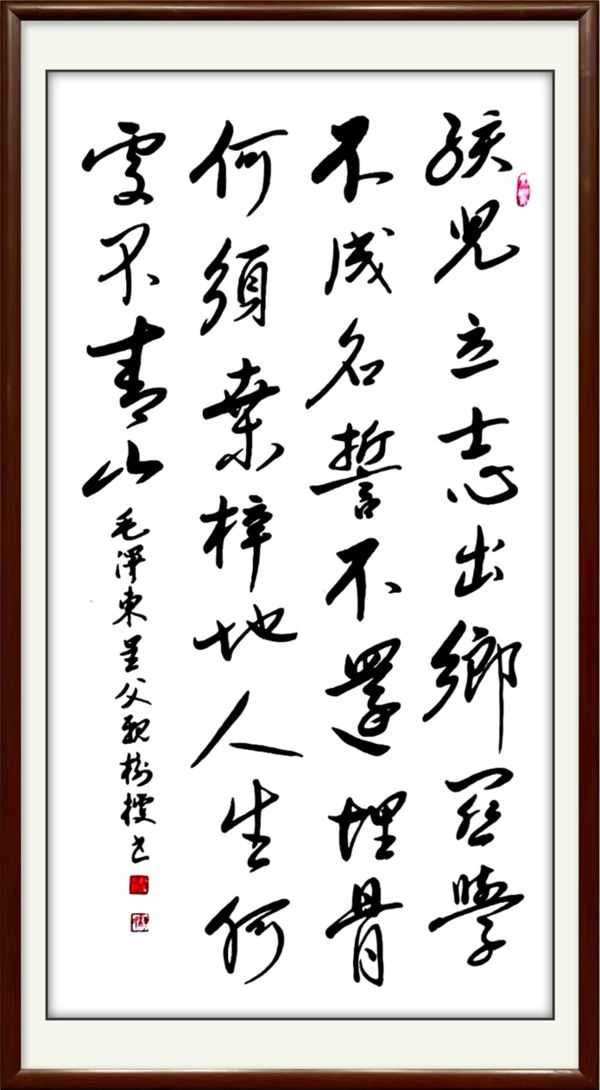 孩兒立志出鄉関學
不成名誓不還埋骨
何須桑梓地人生何
處不青山
毛澤東呈父親樹書